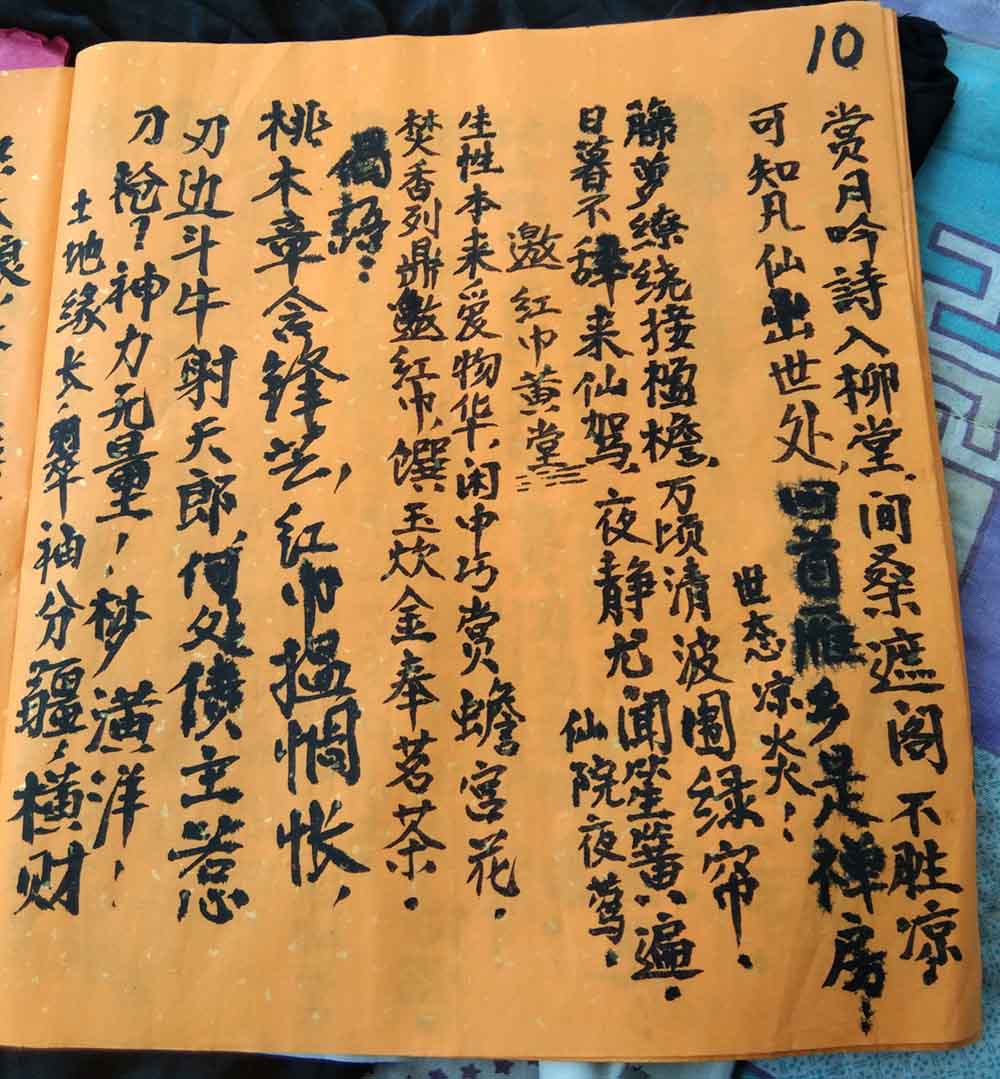 10
赏月吟詩入柳堂,间桑遮阁不胜凉.
可知凡仙出世处,回首雁乡是禅房!
世态凉炎!
藤萝缭绕接楹檐,万顷清波围绿帘.
日暮不辞来仙驾,夜静尤闻笙簧遍.
仙院夜莺.
邀红巾黄堂
生性本来爱物华,闲中巧赏蟾宫花.
焚香列鼎邀红巾,馔玉炊金奉茗茶.
偈語:
桃木章含锋芒,红巾揾惆怅,
刃边斗牛射天郎,何处债主惹
刀枪?神力无量!梦潢洋!
土地缘长,翠袖分疆,横财